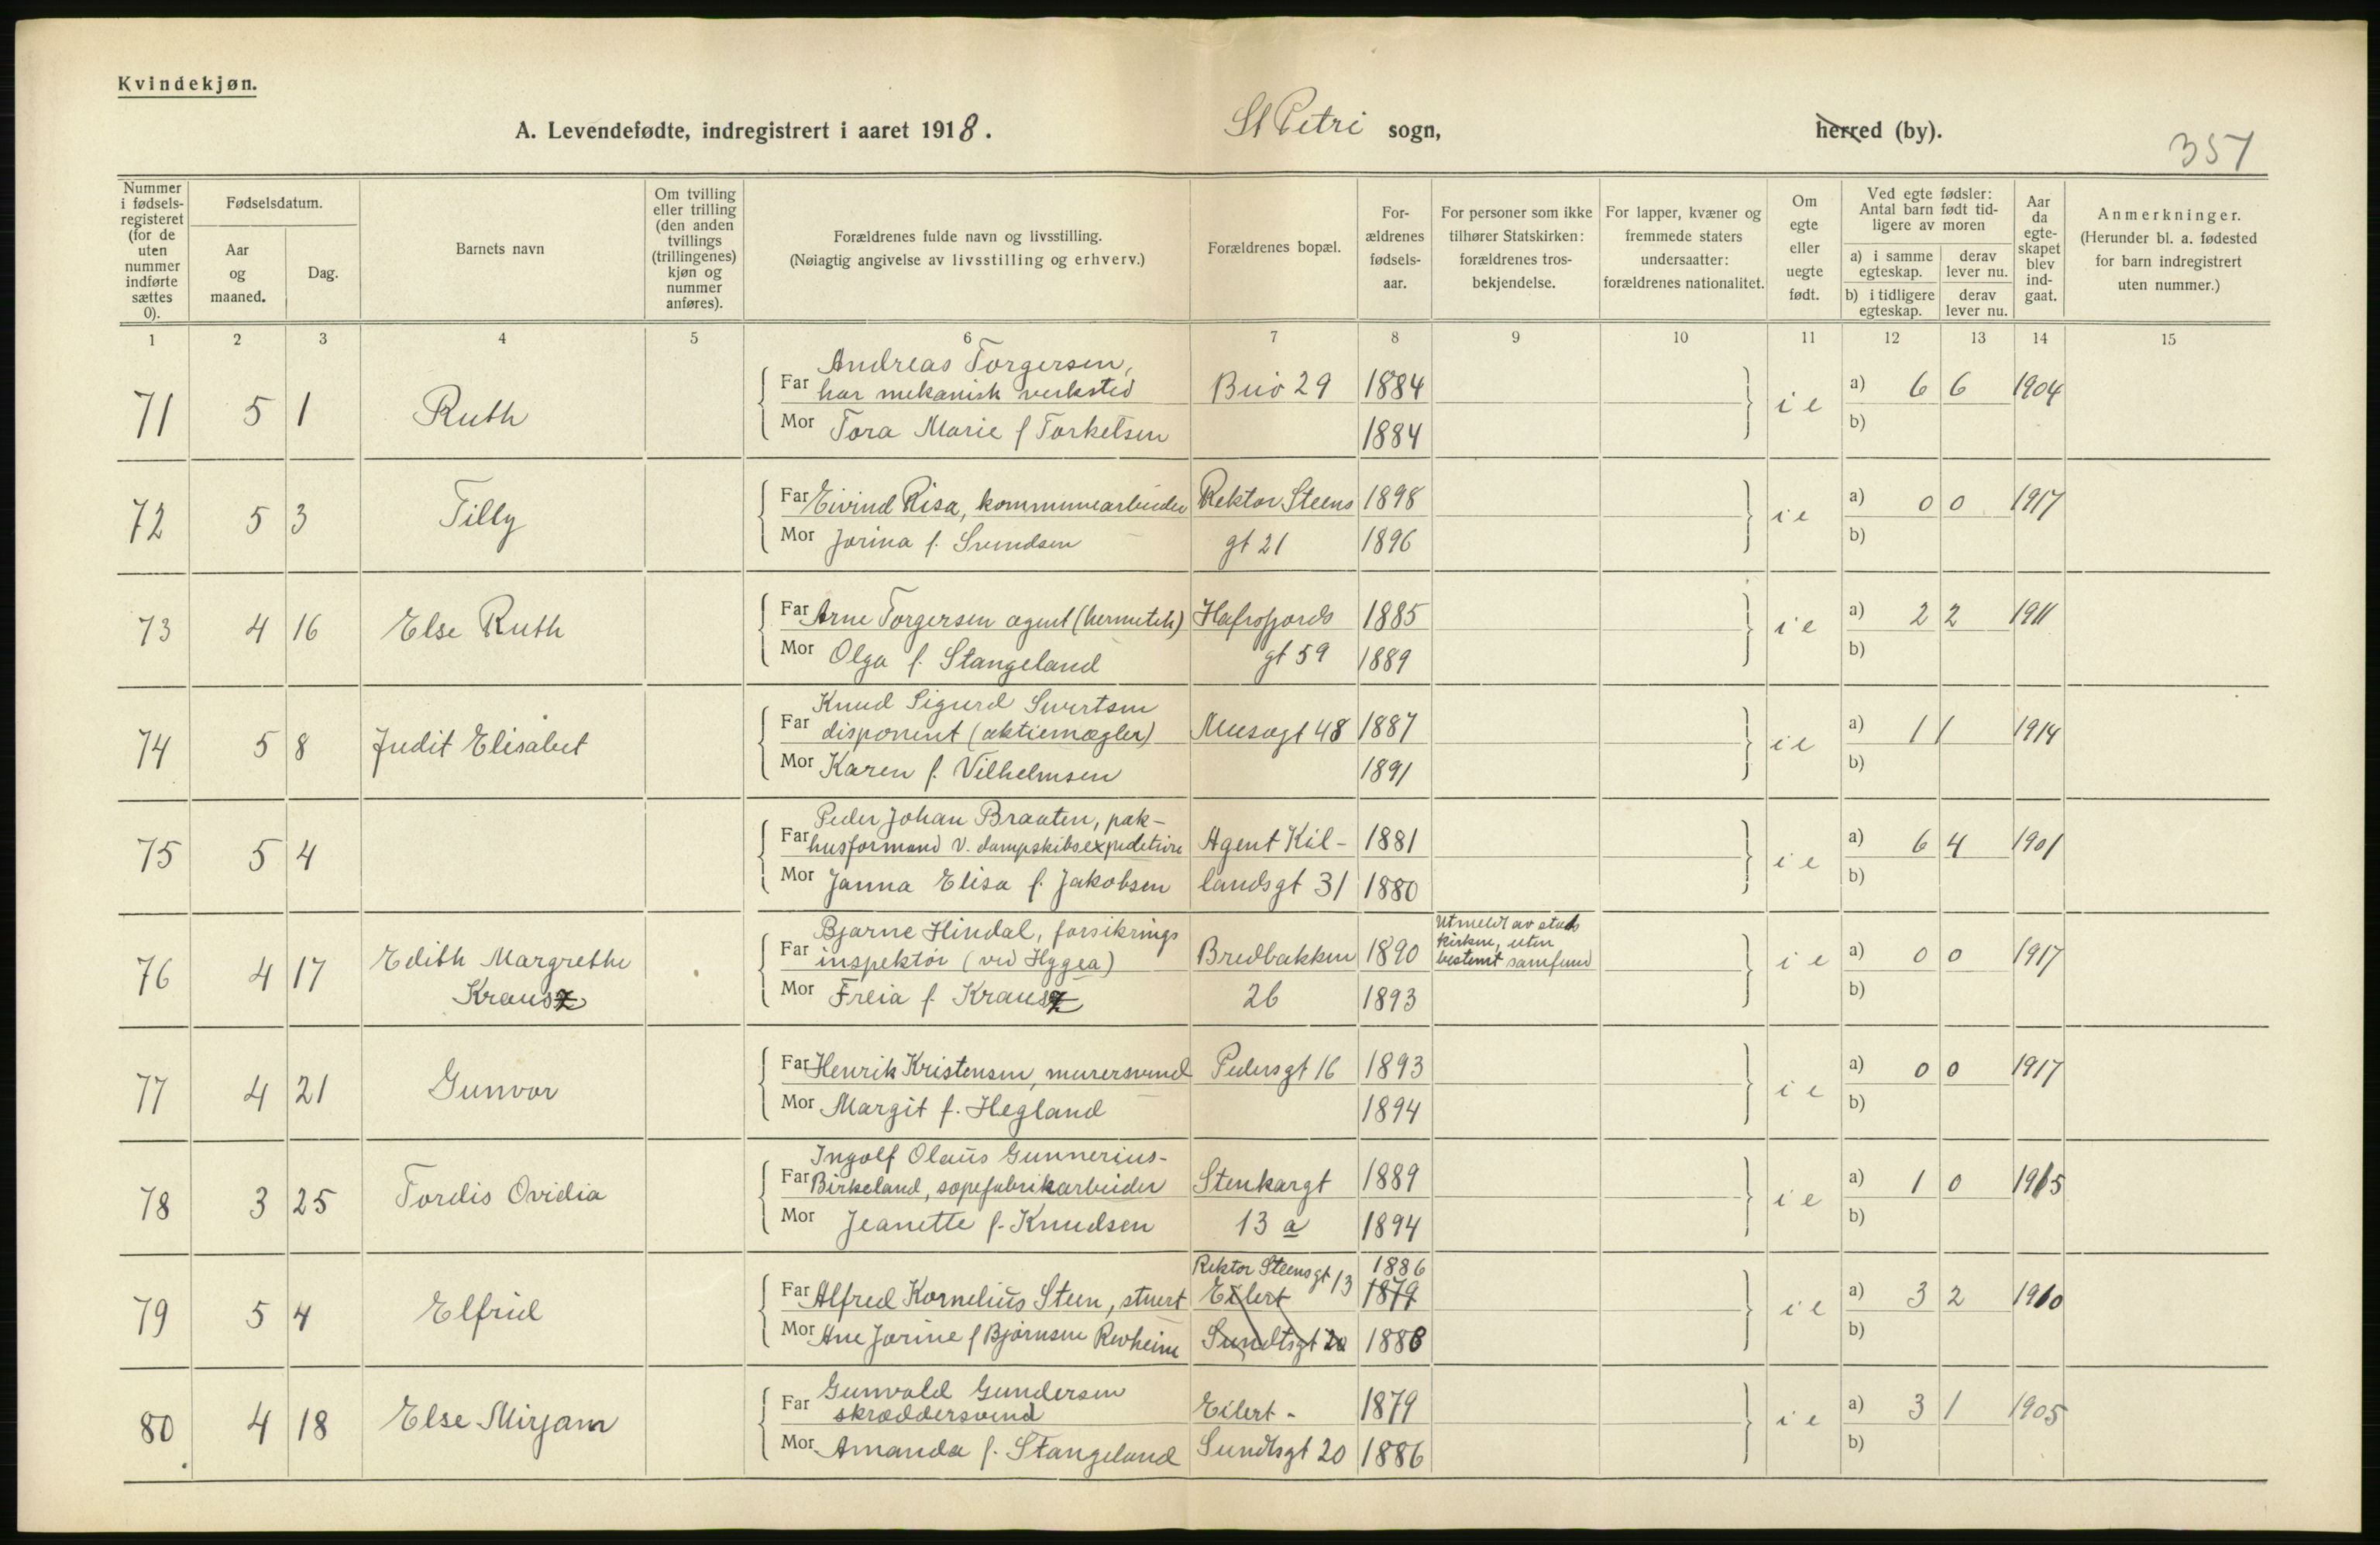 Kvindekjøn.
A. Levendefødte, indregistrert i aaret 1918. St Petri sogn, herred (by).
357
Nummer i fødselsregisteret (for de uten nummer indførte sættes 0).
Fødselsdatum.
Aar og maaned.
Dag.
Barnets navn
Om tvilling eller trilling (den anden tvillings (trillingenes) kjøn og nummer anføres).
Forældrenes fulde navn og livsstilling.
(Nøiagtig angivelse av livsstilling og erhverv.)
Forældrenes bopæl.
Forældrenes fødselsaar.
For personer som ikke tilhører Statskirken: forældrenes trosbekjendelse.
For lapper, kvæner og fremmede staters undersaatter: forældrenes nationalitet.
Om egte eller uegte født.
Ved egte fødsler: Antal barn født tidligere av moren
a) i samme egteskap. derav lever nu.
b) i tidligere egteskap. derav lever nu.
Aar da egteskapet blev indgaat.
Anmerkninger.
(Herunder bl. a. fødested for barn indregistrert uten nummer.)
1 2 3 4 5 6 7 8 9 10 11 12 13 14 15
Andreas Torgersen,
71 5 1 Ruth Far har mekanisk verksted Buø 29 1884 i e a) 6 6 1904
Mor Tora Marie f Torkelsen 1884 b)
72 5 3 Tilly Far Eivind Risa, kommunearbeider Rektor Steens 1898 i e a) 0 0 1917
Mor Jorina f. Svendsen gt 21 1896 b)
73 4 16 Else Ruth Far Arne Torgersen agent (hermetik) Hafrsfjords 1885 i e a) 2 2 1911
Mor Olga f. Stangeland gt 59 1889 b)
Knud Sigurd Sivertsen
74 5 8 Judit Elisabet Far disponent (aktiemægler) Musægt 48 1887 i e a) 1 1 1914
Mor Karen f. Vilhelmsen 1891 b)
Peder Johan Braaten, pak-
75 5 4 Far husformand v. dampskibsexpedition Agent Kil- 1881 i e a) 6 4 1901
Mor Janna Elisa f. Jakobsen landsgt 31 1880 b)
Bjarne Hindal, forsikrings
76 4 17 Edith Margrethe Krausz Far inspektør (ved Hygea) Bredbakken 1890 Utmeldt av stats kirken, uten bestemt samfund i e a) 0 0 1917
Mor Freia f. Krausz 26 1893 b)
77 4 21 Gunvor Far Henrik Kristensen, murersvend Pedersgt 16 1893 i e a) 0 0 1917
Mor Margit f. Hegland 1894 b)
Ingolf Olaus Gunnerius-
78 3 25 Tordis Ovidia Far Birkeland, sæpefabrikarbeider Stenkargt 1889 i e a) 1 0 1915
Mor Jeanette f. Knudsen 13 a 1894 b)
Rektor Steensgt 13 1886
79 5 4 Elfrid Far Alfred Kornelius Steen, stuert Eilert 1879 i e a) 3 2 1910
Mor Ane Jorine f Bjørnsen Revheim Sundtsgt 20 1888 b)
Gunvald Gundersen
80 4 18 Else Mirjam Far skræddersvend Eilert - 1879 i e a) 3 1 1905
Mor Amanda f. Stangeland Sundtsgt 20 1886 b)